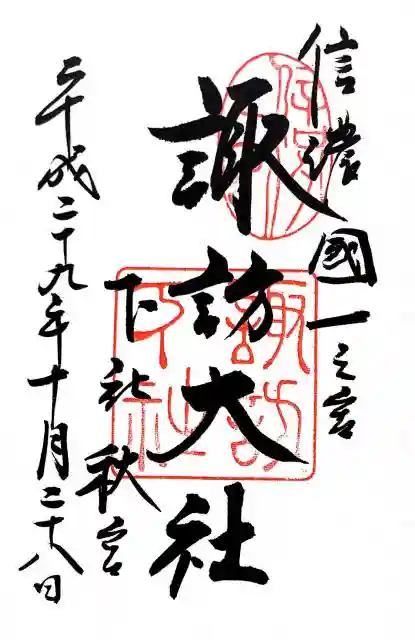 信濃國一之宮
諏訪大社
下社秋宮
平成二十九年十月二十八日